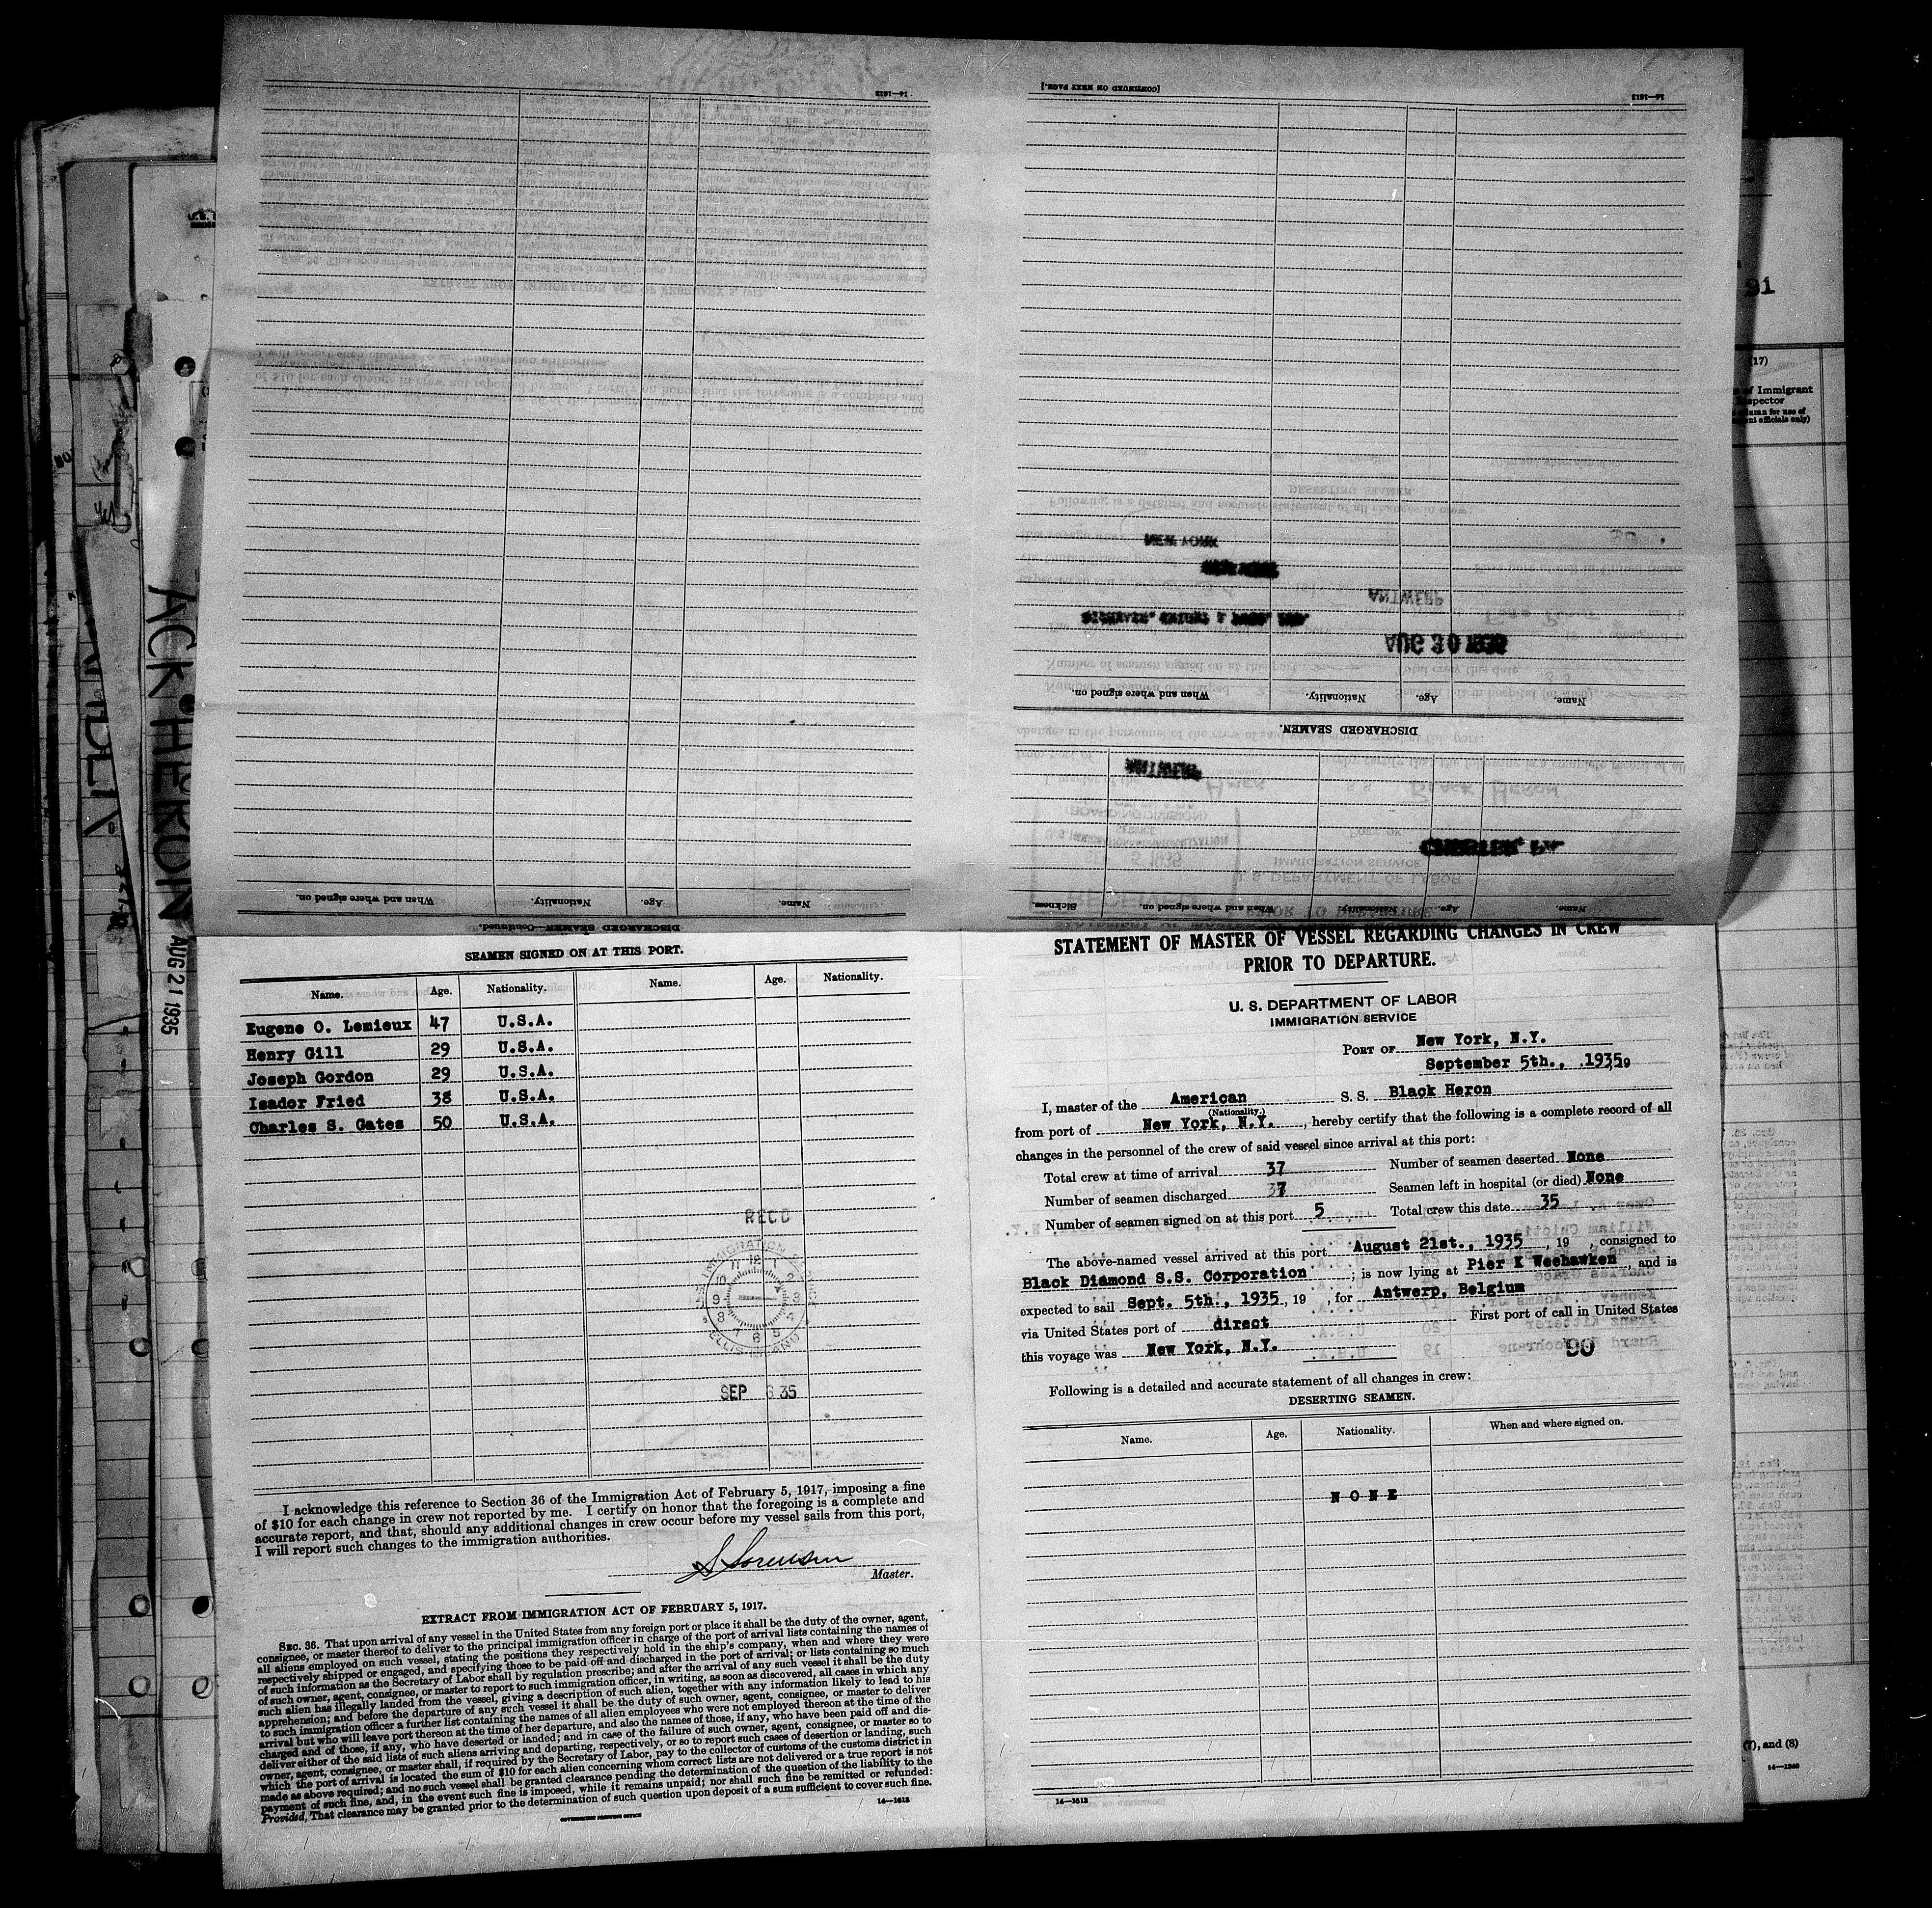 SEAMEN SIGNED ON AT THIS PORT.
Name. Age. Nationality. Name. Age. Nationality.
Eugene O. Lemieux 47 U.S.A.
Henry Gill 29 U.S.A.
Joseph Gordon 29 U.S.A.
Isador Fried 38 U.S.A.
Charles S. Gates 50 U.S.A.
RECD
U.S. IMMIGRATION SERVICE
ELLIS ISLAND
SEP 6 35
I acknowledge this reference to Section 36 of the Immigration Act of February 5, 1917, imposing a fine
of $10 for each change in crew not reported by me. I certify on honor that the foregoing is a complete and
accurate report, and that, should any additional changes in crew occur before my vessel sails from this port,
I will report such changes to the immigration authorities.
S Sorensen
Master.
EXTRACT FROM IMMIGRATION ACT OF FEBRUARY 5, 1917.
SEC. 36. That upon arrival of any vessel in the United States from any foreign port or place it shall be the duty of the owner, agent,
consignee, or master thereof to deliver to the principal immigration officer in charge of the port of arrival lists containing the names of
all aliens employed on such vessel, stating the positions they respectively hold in the ship's company, when and where they were
respectively shipped or engaged, and specifying those to be paid off and discharged in the port of arrival; or lists containing so much
of such information as the Secretary of Labor shall by regulation prescribe; and after the arrival of any such vessel it shall be the duty
of such owner, agent, consignee, or master to report to such immigration officer, in writing, as soon as discovered, all cases in which any
such alien has illegally landed from the vessel, giving a description of such alien, together with any information likely to lead to his
apprehension; and before the departure of any such vessel it shall be the duty of such owner, agent, consignee, or master to deliver
to such immigration officer a further list containing the names of all alien employees who were not employed thereon at the time of the
arrival but who will leave port thereon at the time of her departure, and also the names of those, if any, who have been paid off and dis-
charged and of those, if any, who have deserted or landed; and in case of the failure of such owner, agent, consignee, or master so to
deliver either of the said lists of such aliens arriving and departing, respectively, or so to report such cases of desertion or landing, such
owner, agent, consignee, or master shall, if required by the Secretary of Labor, pay to the collector of customs of the customs district in
which the port of arrival is located the sum of $10 for each alien concerning whom correct lists are not delivered or a true report is not
made as above required; and no such vessel shall be granted clearance pending the determination of the question of the liability to the
payment of such fine, and, in the event such fine is imposed, while it remains unpaid; nor shall such fine be remitted or refunded:
Provided, That clearance may be granted prior to the determination of such question upon deposit of a sum sufficient to cover such fine.
GOVERNMENT PRINTING OFFICE 14—1613
STATEMENT OF MASTER OF VESSEL REGARDING CHANGES IN CREW
PRIOR TO DEPARTURE.
U. S. DEPARTMENT OF LABOR
IMMIGRATION SERVICE
PORT OF New York, N.Y.
September 5th., 1935, 19
I, master of the American S. S. Black Heron
(Nationality.)
from port of New York, N.Y., hereby certify that the following is a complete record of all
changes in the personnel of the crew of said vessel since arrival at this port:
Total crew at time of arrival 37 Number of seamen deserted None
Number of seamen discharged 7 Seamen left in hospital (or died) None
Number of seamen signed on at this port 5 Total crew this date 35
The above-named vessel arrived at this port August 21st., 1935, 19 , consigned to
Black Diamond S.S. Corporation ; is now lying at Pier K Weehawken, and is
expected to sail Sept. 5th., 1935, 19 , for Antwerp, Belgium
via United States port of direct First port of call in United States
this voyage was New York, N.Y.
90
Following is a detailed and accurate statement of all changes in crew:
DESERTING SEAMEN.
Name. Age. Nationality. When and where signed on.
NONE
14—1613
DISCHARGED SEAMEN—Continued.
Name. Age. Nationality. When and where signed on.
14—1613
Name. Age. Nationality. When and where signed on. Sickness.
DISCHARGED SEAMEN.
Name. Age. Nationality. When and where signed on.
AUG 30
ANTWERP
NEW YORK
[CONTINUED ON NEXT PAGE.]
14—1613
ACK HERON
AUG 21 1935
91
(17)
of Immigrant
Inspector
column for use of
officials only)
(7), and (8)
14—1240